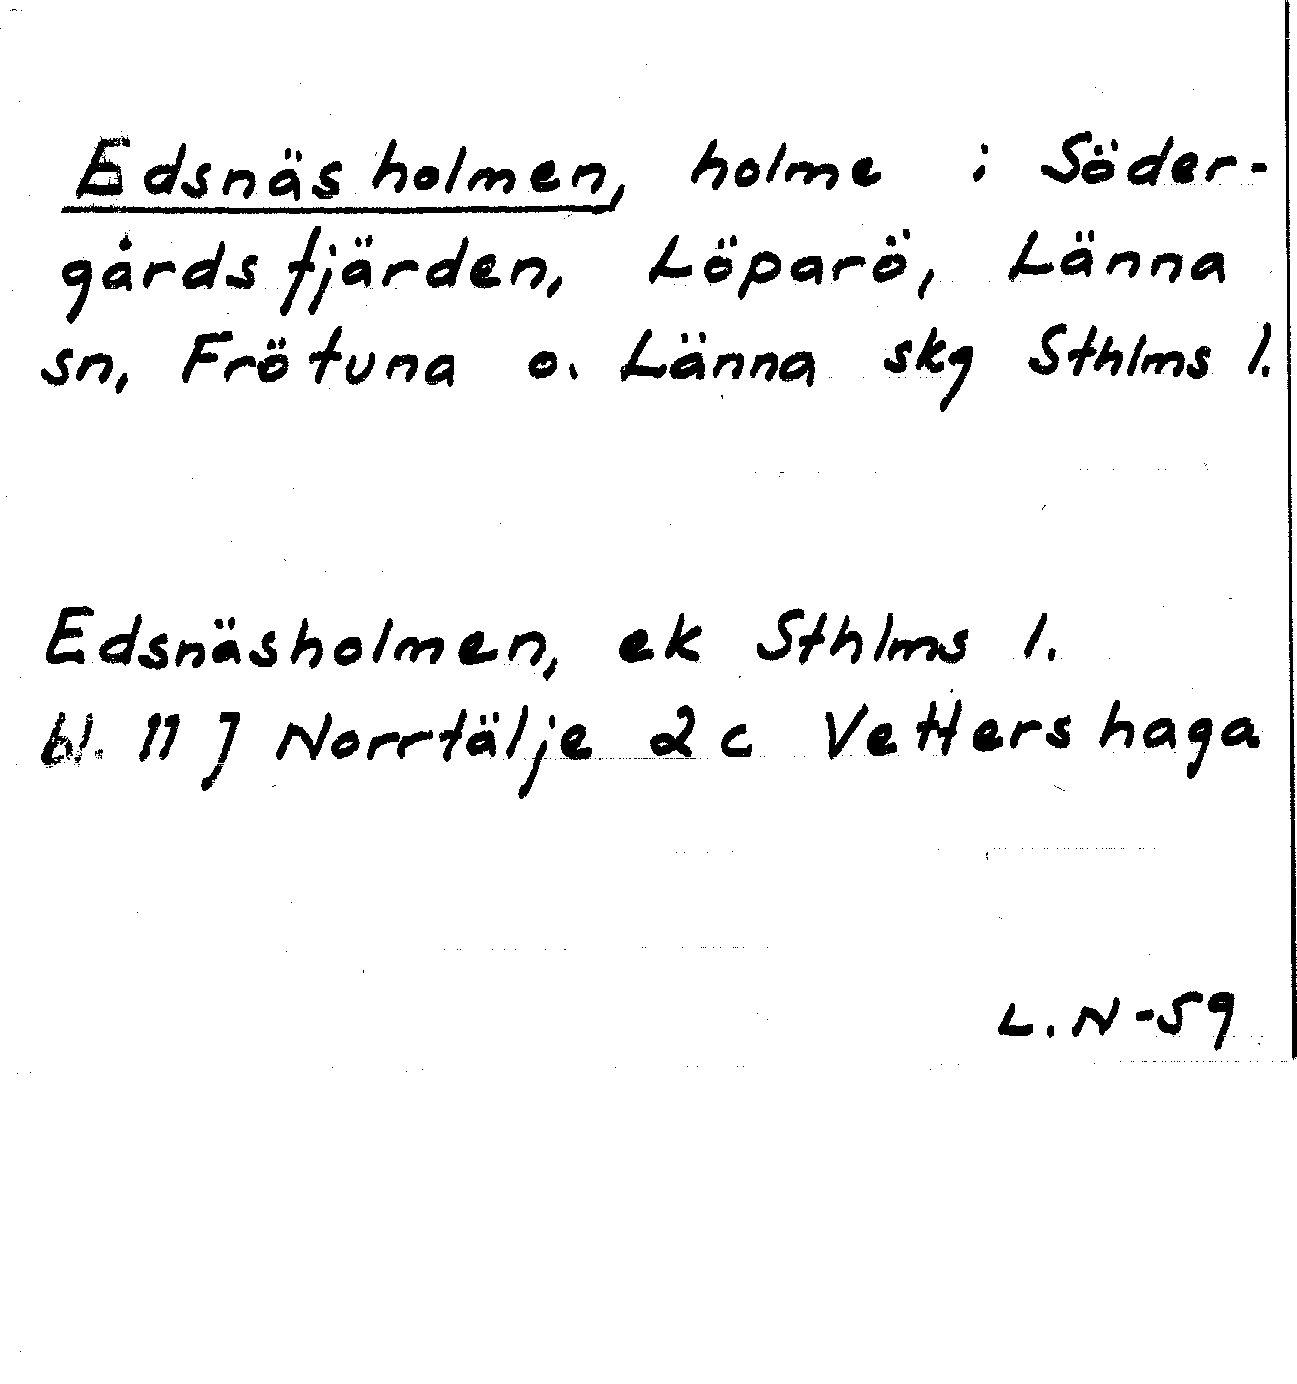 Edsnäsholmen, holme i Söder-
gårdsfjärden, Löparö, Länna
sn, Frötuna o. Länna skg Sthlms l.
Edsnäsholmen, ek Sthlms l.
bl. 11 J Norrtälje 2 c Vettershaga
L. N -59